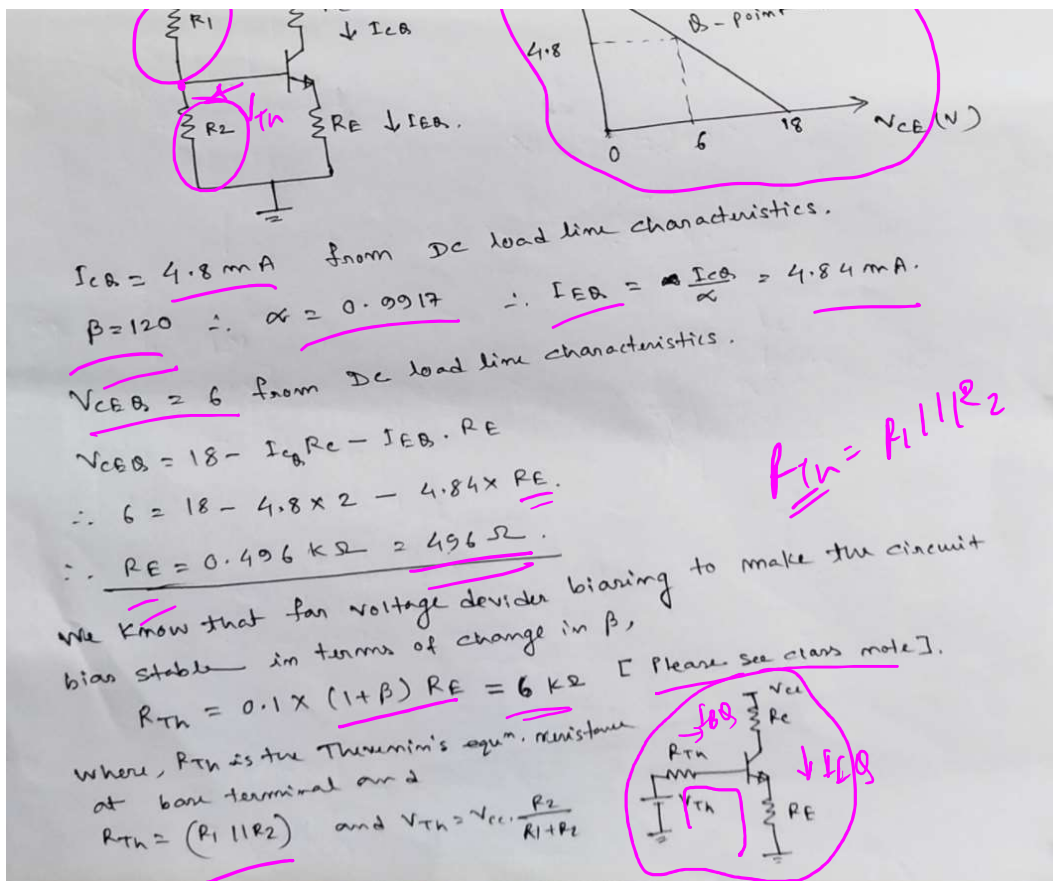 R1
↓ ICQ
Q - point
4.8
VTh
R2
RE ↓ IEQ.
0
6
18
VCE (V)
ICQ = 4.8 mA from DC load line characteristics.
β = 120 ∴ α = 0.9917 ∴ IEQ = ICQ/α = 4.84 mA.
VCEQ = 6 from DC load line characteristics.
VCEQ = 18 - ICQ RC - IEQ . RE
∴ 6 = 18 - 4.8 × 2 - 4.84 × RE.
RTh = R1 || R2
∴ RE = 0.496 kΩ = 496 Ω.
We know that for voltage devider biasing to make the circuit
bias stable in terms of change in β,
RTh = 0.1 × (1+β) RE = 6 kΩ [Please see class note].
where, RTh is the Thevenin's equn. resistance
at base terminal and
RTh = (R1 || R2) and VTh = VCC . R2/(R1+R2)
VCC
RC
IBQ
RTh
VTh
RE